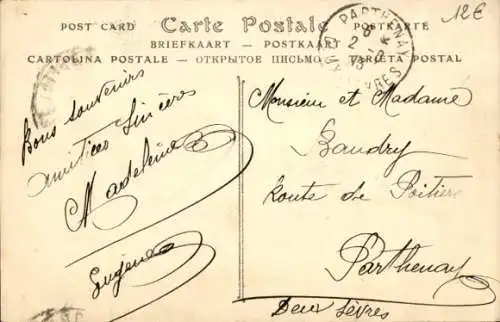 POST CARD Carte Postale POSTKARTE
BRIEFKAART - POSTKAART
CARTOLINA POSTALE - ОТКРЫТОЕ ПИСЬМО - TARJETA POSTAL
12€
PARTHENAY
SÈVRES
Bons souvenirs
amitiés sincères
Madeleine
Eugène
Monsieur et Madame
Baudry
Route de Poitiers
Parthenay
Deux Sèvres